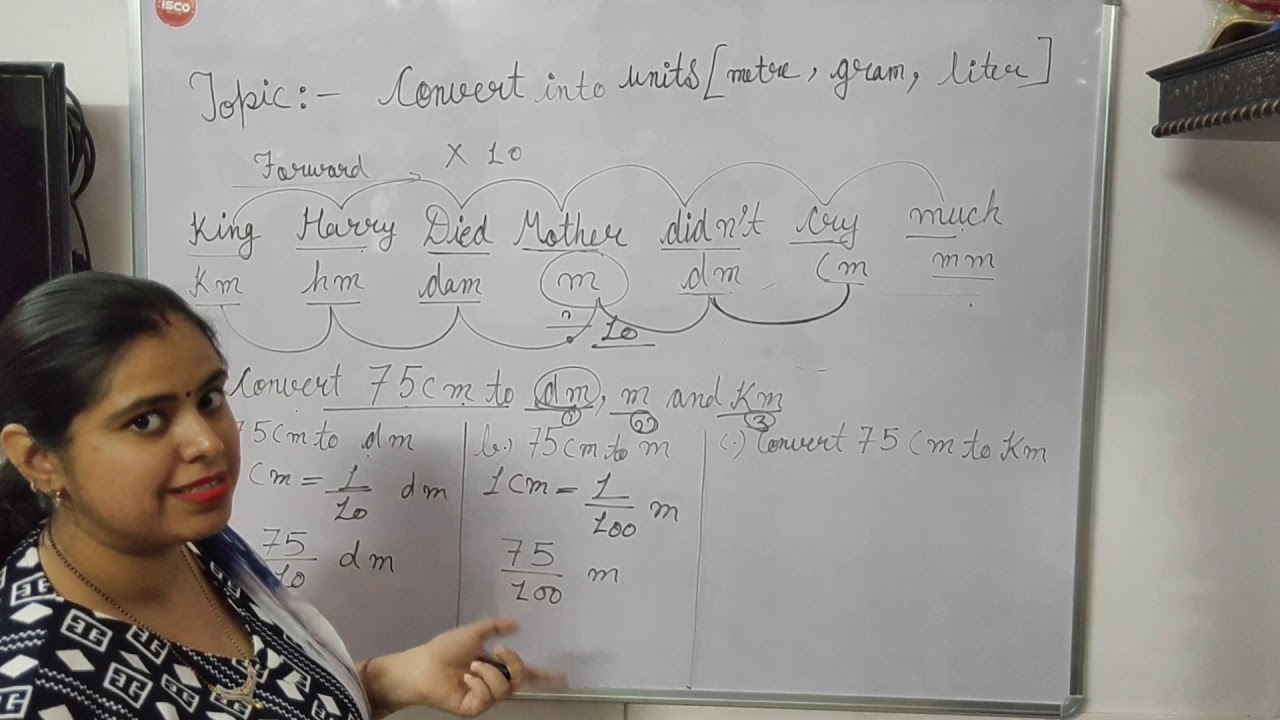 ISCO
Topic:- Convert into units [metre, gram, liter]
Forward × 10
King Harry Died Mother didn't Cry much
Km hm dam m dm Cm mm
÷ 10
Convert 75 Cm to dm, m and Km
1 2 3
75 Cm to dm
Cm = 1/10 dm
75/10 dm
b.) 75 Cm to m
1 Cm = 1/100 m
75/100 m
C.) Convert 75 Cm to Km